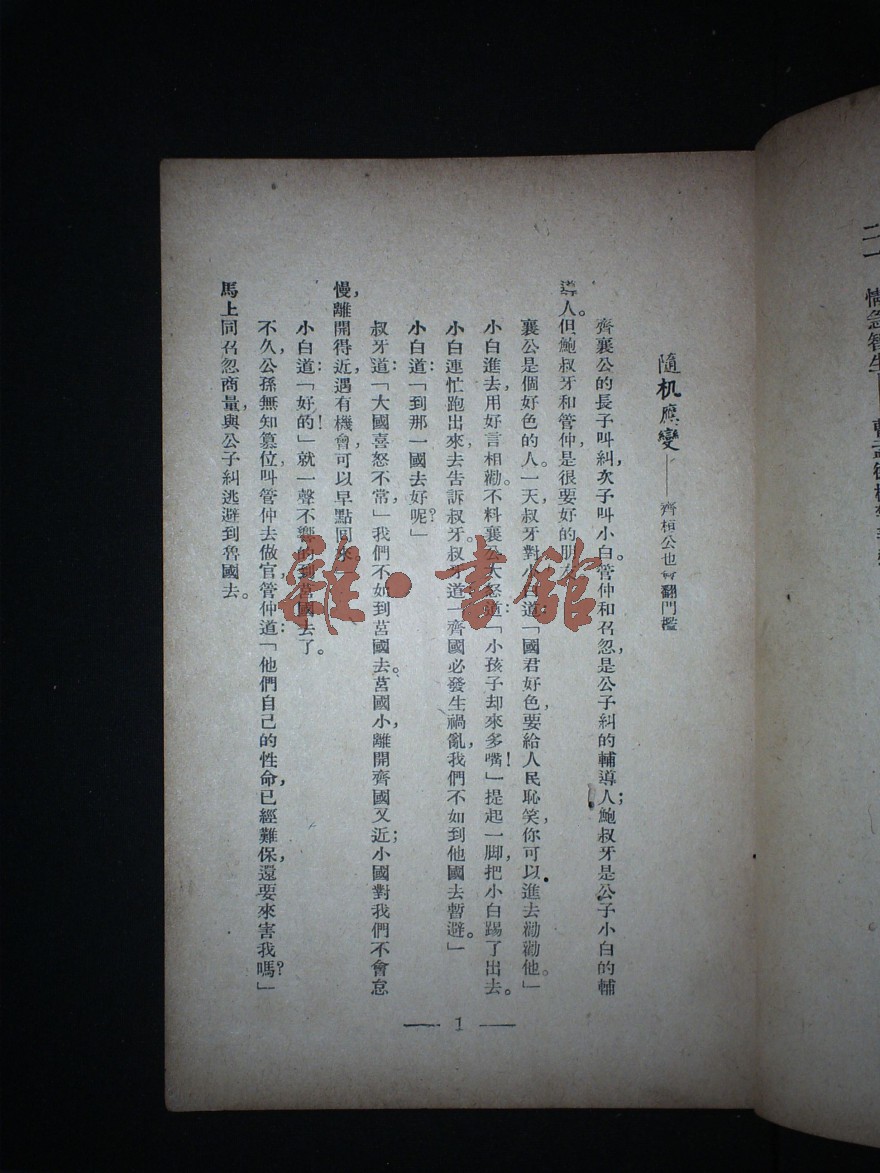 隨机應變——齊桓公也會翻門檻
齊襄公的長子叫糾，次子叫小白。管仲和召忽，是公子糾的輔導人；鮑叔牙是公子小白的輔
導人。但鮑叔牙和管仲，是很要好的朋友。
襄公是個好色的人。一天，叔牙對小白道：「國君好色，要給人民恥笑，你可以進去勸勸他。」
小白進去，用好言相勸。不料襄公大怒道：「小孩子却來多嘴！」提起一脚，把小白踢了出去。
小白連忙跑出來，去告訴叔牙。叔牙道：「齊國必發生禍亂，我們不如到他國去暫避。」
小白道：「到那一國去好呢？」
叔牙道：「大國喜怒不常，我們不如到莒國去。莒國小，離開齊國又近；小國對我們不會怠
慢，離開得近，遇有機會，可以早點回來。」
小白道：「好的！」就一聲不嚮的到莒國去了。
不久，公孫無知篡位，叫管仲去做官，管仲道：「他們自己的性命，已經難保，還要來害我嗎？」
馬上同召忽商量，與公子糾逃避到魯國去。
— 1 —
雜·書館
二一 情急智生——